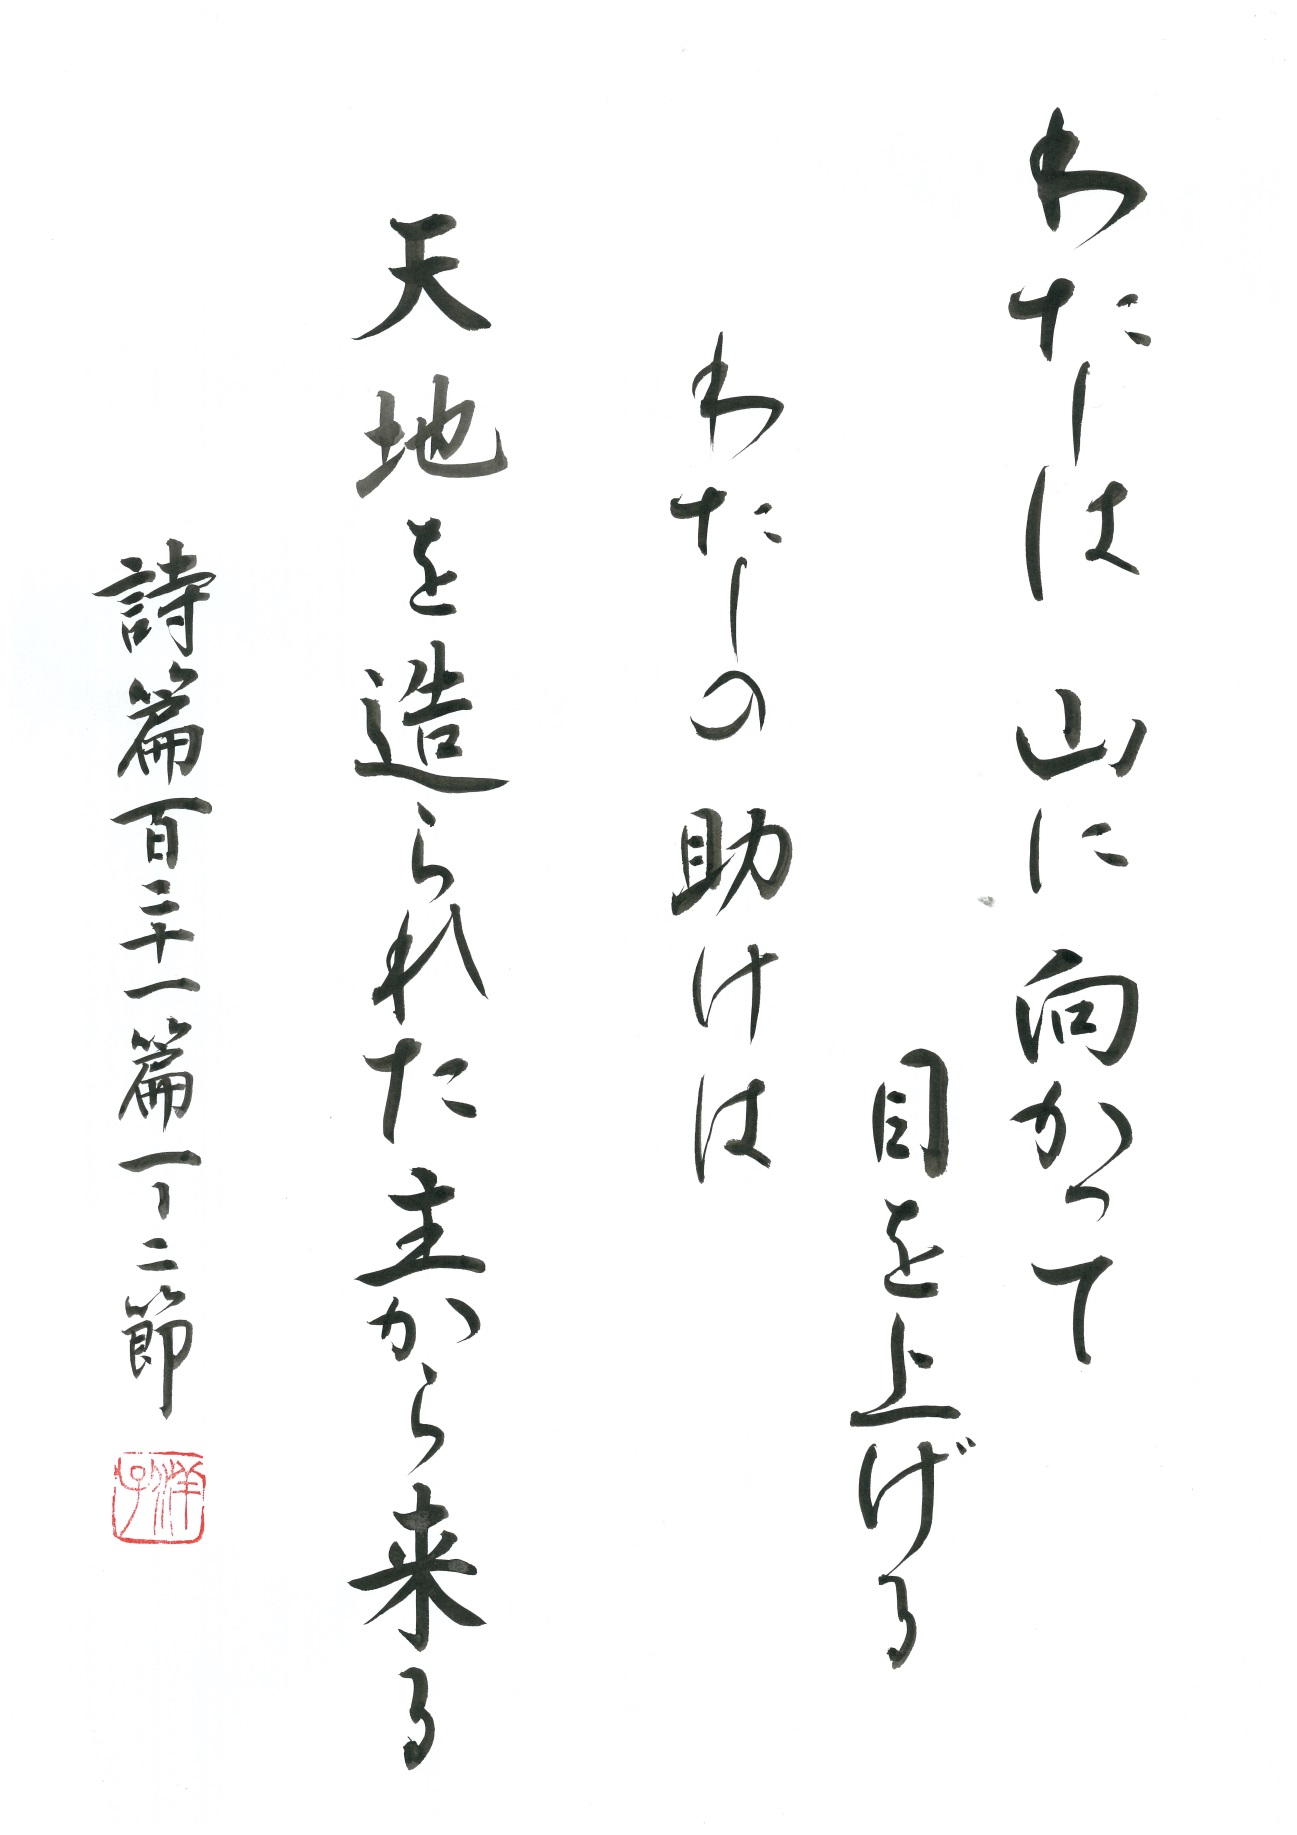 わたしは 山に 向かって
目を上げる
わたしの 助けは
天地を造られた主から来る
詩篇百二十一篇一ー二節
洋子